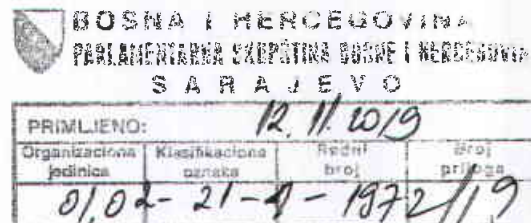 BOSNA I HERCEGOVINA
PARLAMENTARNA SKUPŠTINA BOSNE I HERCEGOVINE
SARAJEVO
PRIMLJENO: 12.11.2019
Organizaciona jedinica Klasifikaciona oznaka Redni broj Broj priloga
01,02-21-1-1972/19